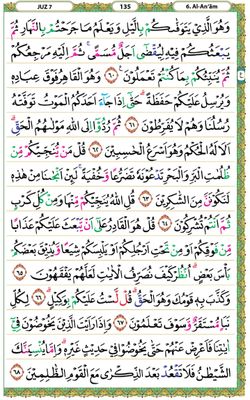 JUZ 7 135 6. Al-An'ām
وَهُوَ الَّذِيْ يَتَوَفّٰىكُمْ بِالَّيْلِ وَيَعْلَمُ مَا جَرَحْتُمْ بِالنَّهَارِ ثُمَّ
يَبْعَثُكُمْ فِيْهِ لِيُقْضٰٓى اَجَلٌ مُّسَمًّىۚ ثُمَّ اِلَيْهِ مَرْجِعُكُمْ
ثُمَّ يُنَبِّئُكُمْ بِمَا كُنْتُمْ تَعْمَلُوْنَ ۝٦٠ وَهُوَ الْقَاهِرُ فَوْقَ عِبَادِهٖ
وَيُرْسِلُ عَلَيْكُمْ حَفَظَةًؕ حَتّٰٓى اِذَا جَآءَ اَحَدَكُمُ الْمَوْتُ تَوَفَّتْهُ
رُسُلُنَا وَهُمْ لَا يُفَرِّطُوْنَ ۝٦١ ثُمَّ رُدُّوْٓا اِلَى اللّٰهِ مَوْلٰىهُمُ الْحَقِّؕ
اَلَا لَهُ الْحُكْمُ وَهُوَ اَسْرَعُ الْحٰسِبِيْنَ ۝٦٢ قُلْ مَنْ يُّنَجِّيْكُمْ مِّنْ
ظُلُمٰتِ الْبَرِّ وَالْبَحْرِ تَدْعُوْنَهٗ تَضَرُّعًا وَّخُفْيَةًۚ لَئِنْ اَنْجٰىنَا مِنْ هٰذِهٖ
لَنَكُوْنَنَّ مِنَ الشّٰكِرِيْنَ ۝٦٣ قُلِ اللّٰهُ يُنَجِّيْكُمْ مِّنْهَا وَمِنْ كُلِّ كَرْبٍ
ثُمَّ اَنْتُمْ تُشْرِكُوْنَ ۝٦٤ قُلْ هُوَ الْقَادِرُ عَلٰٓى اَنْ يَّبْعَثَ عَلَيْكُمْ عَذَابًا
مِّنْ فَوْقِكُمْ اَوْ مِنْ تَحْتِ اَرْجُلِكُمْ اَوْ يَلْبِسَكُمْ شِيَعًا وَّيُذِيْقَ بَعْضَكُمْ
بَاْسَ بَعْضٍؕ اُنْظُرْ كَيْفَ نُصَرِّفُ الْاٰيٰتِ لَعَلَّهُمْ يَفْقَهُوْنَ ۝٦٥
وَكَذَّبَ بِهٖ قَوْمُكَ وَهُوَ الْحَقُّؕ قُلْ لَّسْتُ عَلَيْكُمْ بِوَكِيْلٍ ۝٦٦ لِكُلِّ
نَبَاٍ مُّسْتَقَرٌّ وَّسَوْفَ تَعْلَمُوْنَ ۝٦٧ وَاِذَا رَاَيْتَ الَّذِيْنَ يَخُوْضُوْنَ فِيْٓ
اٰيٰتِنَا فَاَعْرِضْ عَنْهُمْ حَتّٰى يَخُوْضُوْا فِيْ حَدِيْثٍ غَيْرِهٖؕ وَاِمَّا يُنْسِيَنَّكَ
الشَّيْطٰنُ فَلَا تَقْعُدْ بَعْدَ الذِّكْرٰى مَعَ الْقَوْمِ الظّٰلِمِيْنَ ۝٦٨